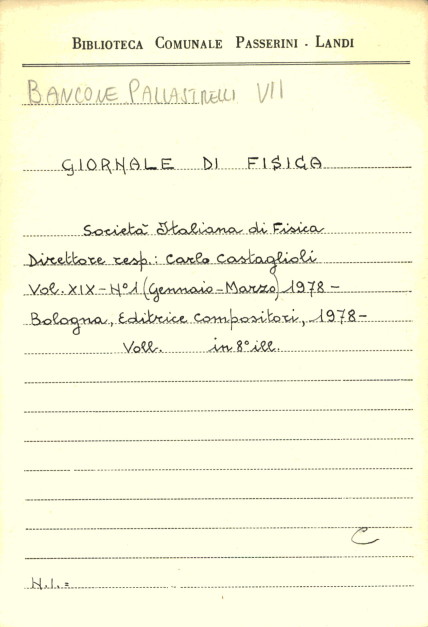 BIBLIOTECA COMUNALE PASSERINI - LANDI
BANCONE PALLASTRELLI VII
GIORNALE DI FISICA
Società Italiana di Fisica
Direttore resp.: Carlo Castaglioli
Vol. XIX - N° 1 (Gennaio - Marzo) 1978 -
Bologna, Editrice Compositori, 1978 -
Voll. in 8° ill.
C
N.I. =